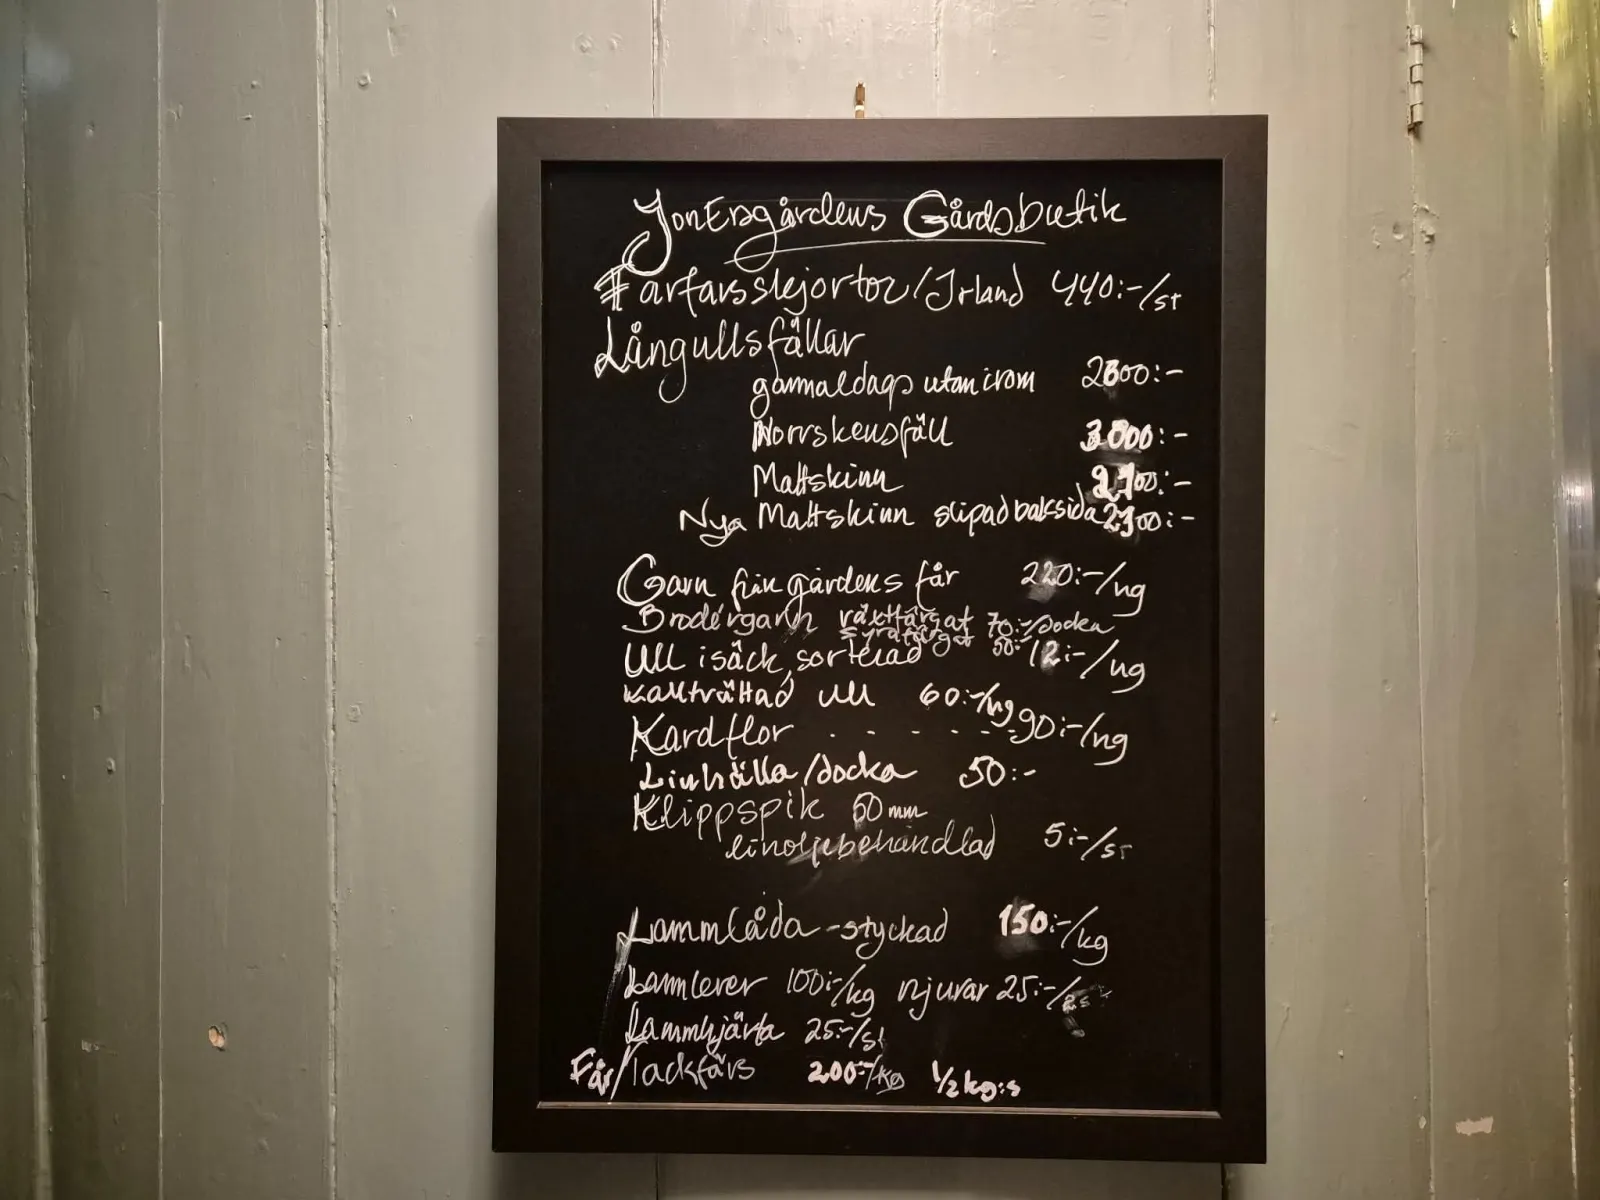 JonErsgårdens Gårdsbutik
Farfarsskjortor/Irland 440:-/st
Långullsfällar
gammaldags utan irom 2600:-
Norrskensfäll 3000:-
Mattskinn 2700:-
Nya Mattskinn slipad baksida 2900:-
Garn från gårdens får 220:-/hg
Brodérgarn växtfärgat 70:-/docka
syrafärgat 50:-
Ull i säck, sorterad 12:-/hg
Kalltvättad ull 60:-/hg
Kardflor - - - - - - 90:-/hg
Linhäkla/docka 50:-
Klippspik 60 mm
linoljebehandlad 5:-/st
Lammlåda - styckad 150:-/kg
Lammlever 100:-/kg njurar 25:-/2st
Lammhjärta 25:-/st
Får/Tackfärs 200:-/kg ½ kg:s